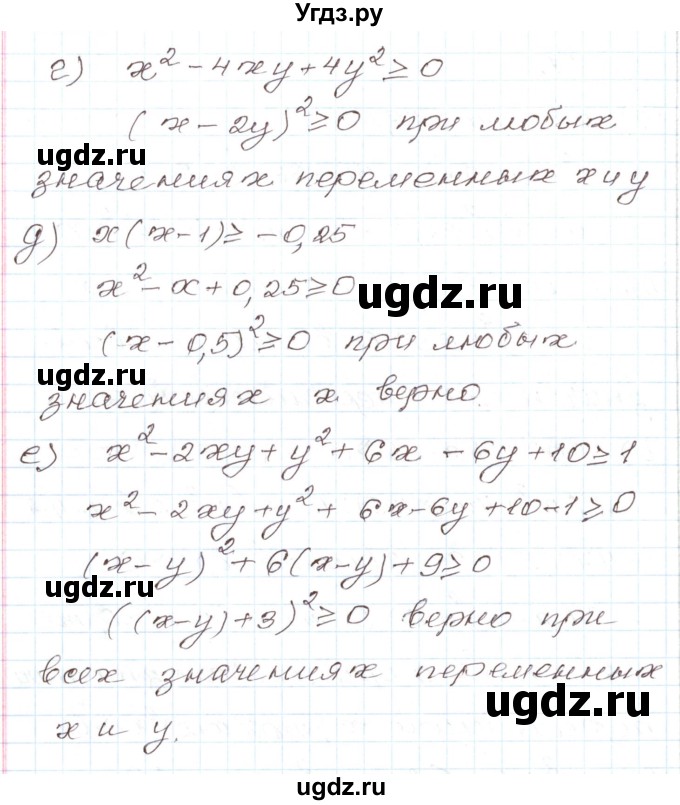 Угдз.ру
г) x² - 4xy + 4y² ≥ 0
(x - 2y)² ≥ 0 при любых
ugdz.ru
значениях переменных x и y
д) x(x-1) ≥ -0,25
x² - x + 0,25 ≥ 0
ugdz.ru
(x - 0,5)² ≥ 0 при любых
ugdz.ru
значениях x верно.
е) x² - 2xy + y² + 6x - 6y + 10 ≥ 1
x² - 2xy + y² + 6x - 6y + 10 - 1 ≥ 0
(x - y)² + 6(x-y) + 9 ≥ 0
ugdz.ru
((x-y)+3)² ≥ 0 верно при
всех значениях переменных
ugdz.ru
x и y.
ugdz.ru